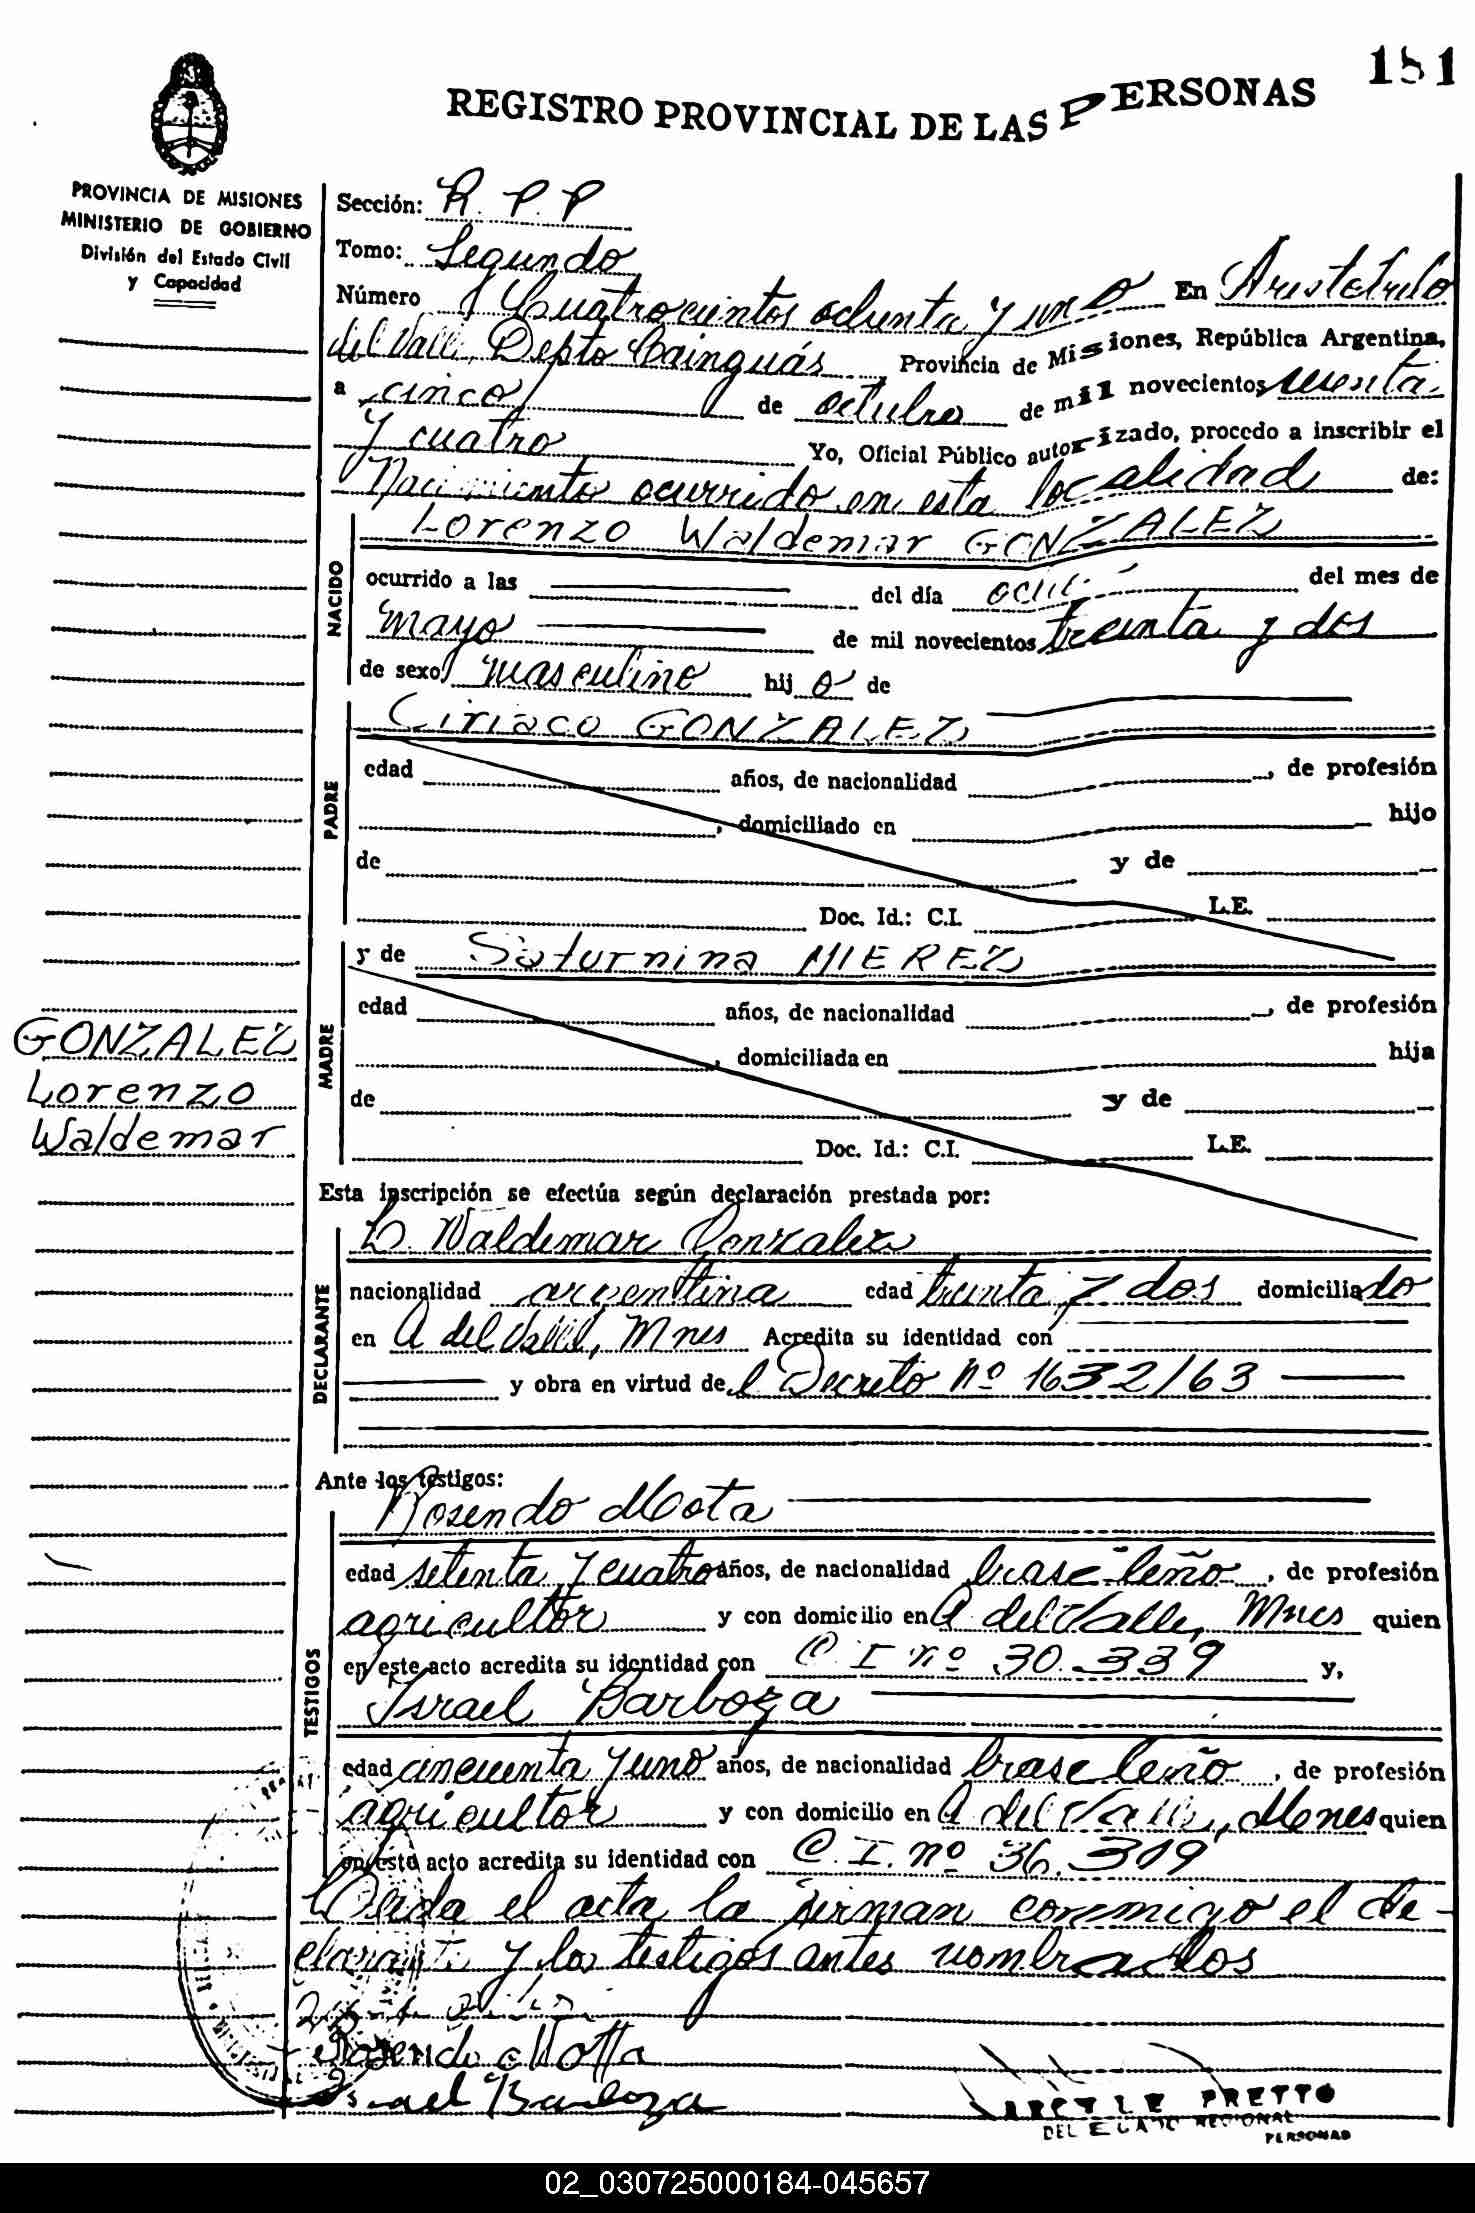 181
REGISTRO PROVINCIAL DE LAS PERSONAS
PROVINCIA DE MISIONES
MINISTERIO DE GOBIERNO
División del Estado Civil
y Capacidad
Sección: R. P. P
Tomo: Segundo
Número Cuatrocientos ochenta y uno En Aristóbulo
del Valle, Depto Cainguás Provincia de Misiones, República Argentina,
a cinco de octubre de mil novecientos sesenta
y cuatro Yo, Oficial Público autorizado, procedo a inscribir el
Nacimiento ocurrido en esta localidad de:
NACIDO
Lorenzo Waldemar GONZALEZ
ocurrido a las del día del mes de
mayo de mil novecientos treinta y dos
de sexo masculino hijo de
PADRE
Ciriaco GONZALEZ
edad años, de nacionalidad , de profesión
, domiciliado en hijo
de y de
Doc. Id.: C.I. L.E.
MADRE
y de Saturnina MIEREZ
edad años, de nacionalidad , de profesión
, domiciliada en hija
de y de
Doc. Id.: C.I. L.E.
GONZALEZ
Lorenzo
Waldemar
Esta inscripción se efectúa según declaración prestada por:
DECLARANTE
L. Waldemar Gonzalez
nacionalidad argentina edad treinta y dos domiciliado
en A del Valle, Mnes Acredita su identidad con
y obra en virtud del Decreto nº 1632/63
Ante los testigos:
TESTIGOS
Rosendo Mota
edad setenta y cuatro años, de nacionalidad brasileño, de profesión
agricultor y con domicilio en A del Valle, Mnes quien
en este acto acredita su identidad con C I nº 30.339 y,
Israel Barboza
edad cincuenta y uno años, de nacionalidad brasileño, de profesión
agricultor y con domicilio en A del Valle, Mones quien
en este acto acredita su identidad con C. I. nº 36.319
Leida el acta la firman conmigo el de-
clarante y los testigos antes nombrados
Rosendo Motta
Israel Barboza
PRETTO
DELEGADO REGIONAL
PERSONAS
02_030725000184-045657